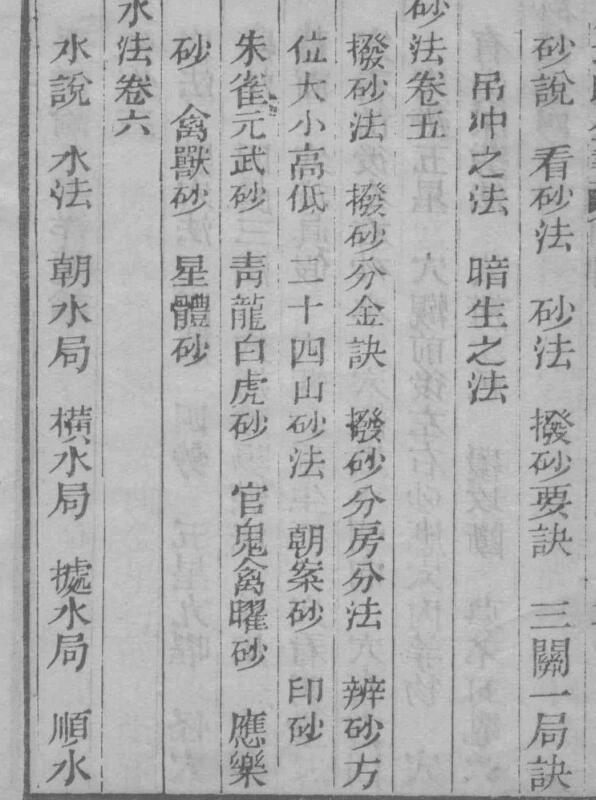 砂說 看砂法 砂法 撥砂要訣 三關一局訣
吊冲之法 暗生之法
砂法卷五
撥砂法 撥砂分金訣 撥砂分房分法 辨砂方
位大小高低 二十四山砂法 朝案砂 印砂
朱雀元武砂 靑龍白虎砂 官鬼禽曜砂 應樂
砂 禽獸砂 星體砂
水法卷六
水說 水法 朝水局 橫水局 據水局 順水